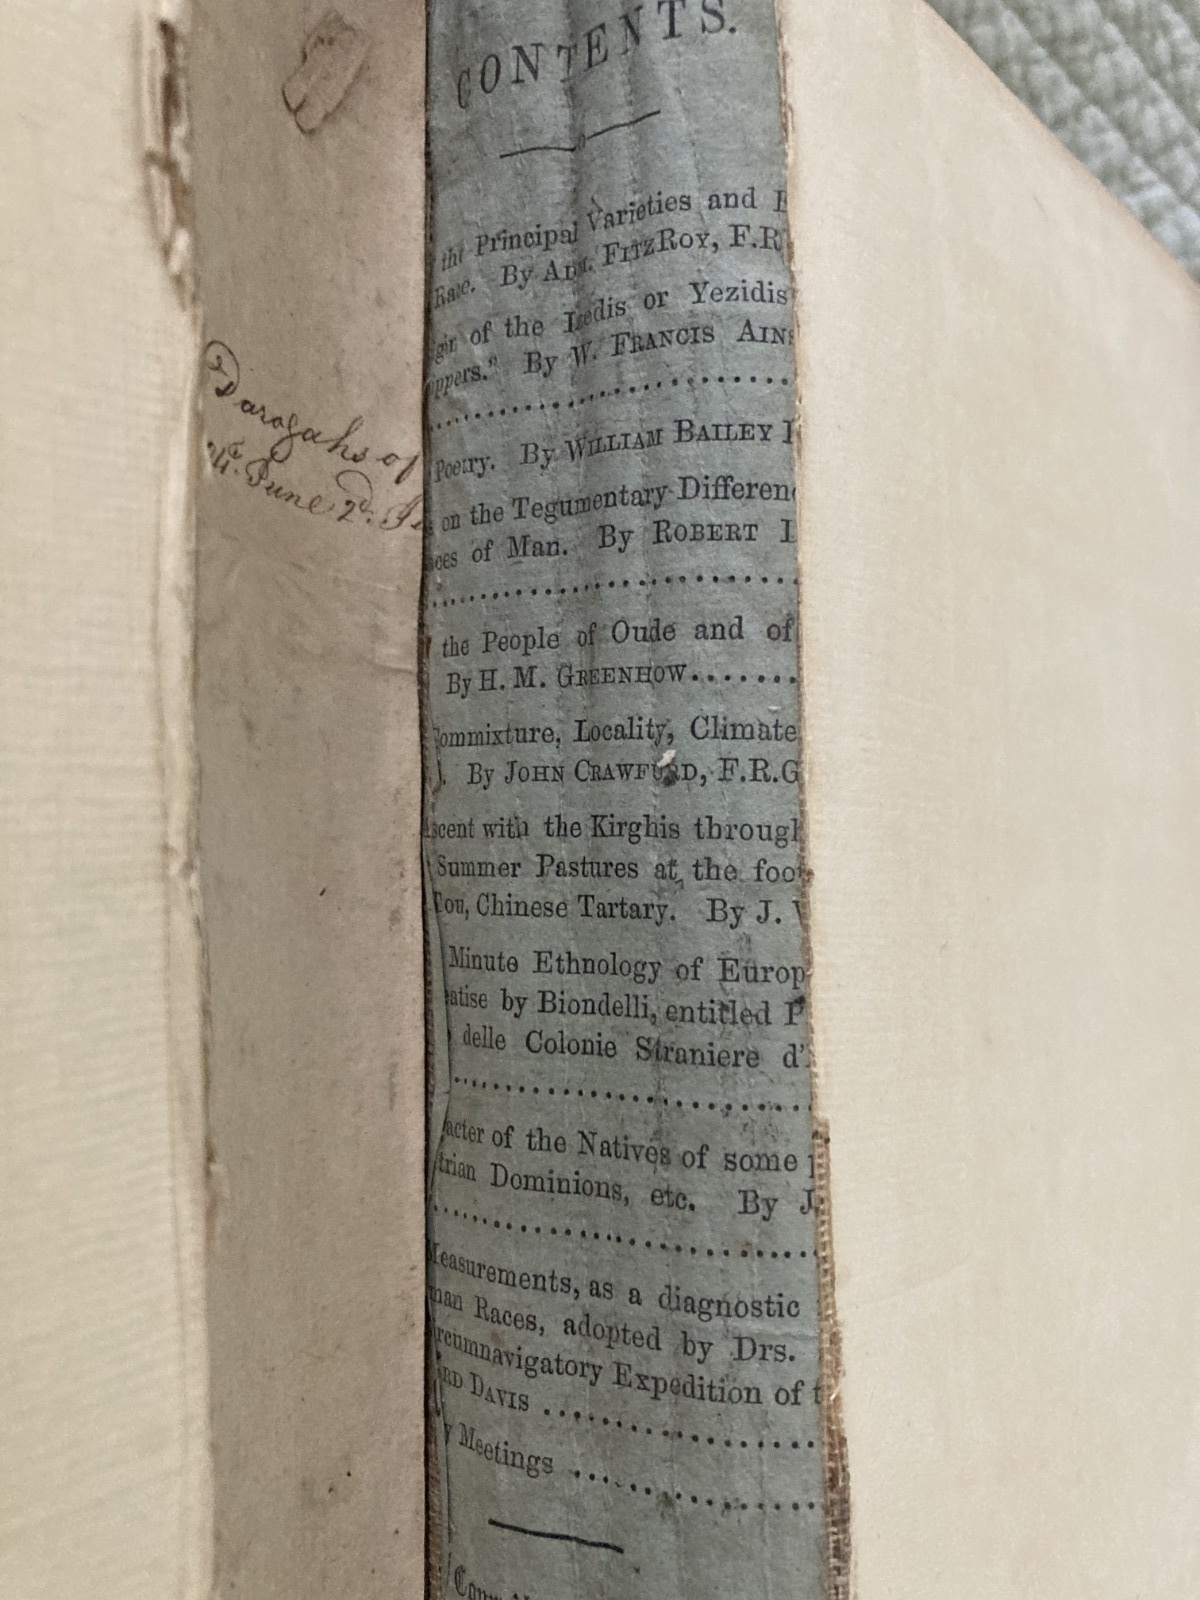 CONTENTS.
the Principal Varieties and
Race. By ADM. FITZROY, F.R
of the Izedis or Yezidis
ippers." By W. FRANCIS AINS
Poetry. By WILLIAM BAILEY
on the Tegumentary Differen
of Man. By ROBERT
the People of Oude and of
By H. M. GREENHOW
Commixture, Locality, Climate
By JOHN CRAWFURD, F.R.G
scent with the Kirghis through
Summer Pastures at the foot
Tou, Chinese Tartary. By J.
Minute Ethnology of Europ
eatise by Biondelli, entitled P
delle Colonie Straniere d'
acter of the Natives of some
trian Dominions, etc. By J
Measurements, as a diagnostic
man Races, adopted by Drs.
rcumnavigatory Expedition of t
RD DAVIS
Meetings
Darogahs of
June 2d.